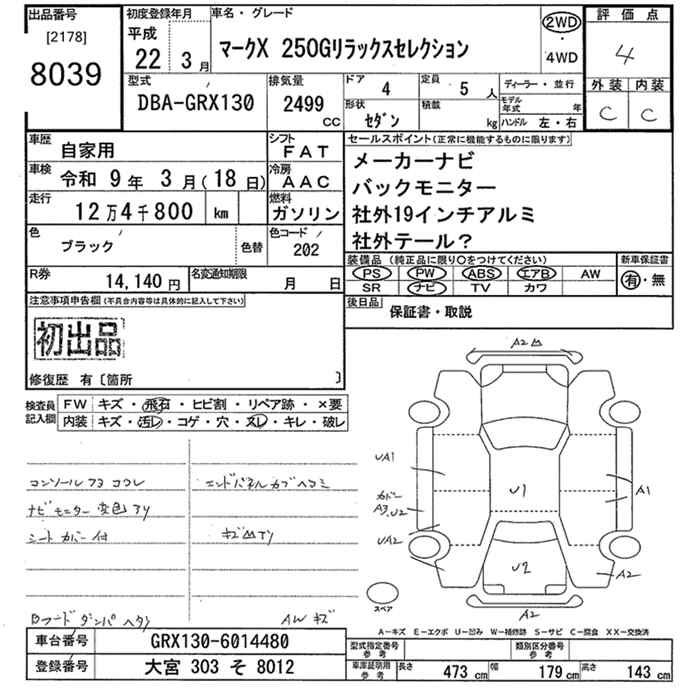 出品番号
[2178]
8039
初度登録年月
平成
22年 3月
車名・グレード
マークX 250Gリラックスセレクション
2WD
・
4WD
評価点
4
外装 内装
C C
型式
DBA-GRX130
排気量
2499
CC
ドア
4
定員
5人
形状
セダン
積載
kg
ディーラー・並行
モデル年式 年
ハンドル 左・右
車歴
自家用
シフト
FAT
車検
令和 9年 3月(18日)
冷房
AAC
走行
12万4千800 km
燃料
ガソリン
色
ブラック
色替
色コード
202
R券
14,140円
名変通知期限
月 日
セールスポイント(正常に機能するものに限ります)
メーカーナビ
バックモニター
社外19インチアルミ
社外テール?
装備品 (純正品に限り○をつけてください)
新車保証書
PS PW ABS エアB AW
SR ナビ TV カワ
有・無
後日品
保証書・取説
注意事項申告欄(不具合内容等は具体的に記入して下さい)
初出品
修復歴 有〔箇所 〕
検査員記入欄
FW キズ・飛石・ヒビ割・リペア跡・×要
内装 キズ・汚レ・コゲ・穴・スレ・キレ・破レ
コンソールフタ コワレ
ナビモニター 変色アリ
シートカバー付
Bフードダンパヘタリ
エンドパネルカブヘコミ
AWキズ
A2
UA1
カバー
A3、U2
UA2
U1
A1
U2
A2
A2
スペア
A－キズ E－エクボ U－凹み W－補修跡 S－サビ C－腐食 XX－交換済
車台番号
GRX130-6014480
登録番号
大宮 303 そ 8012
型式指定番号
参考
類別区分番号
参考
車庫証明用
参考
長さ 473cm 幅 179cm 高さ 143cm